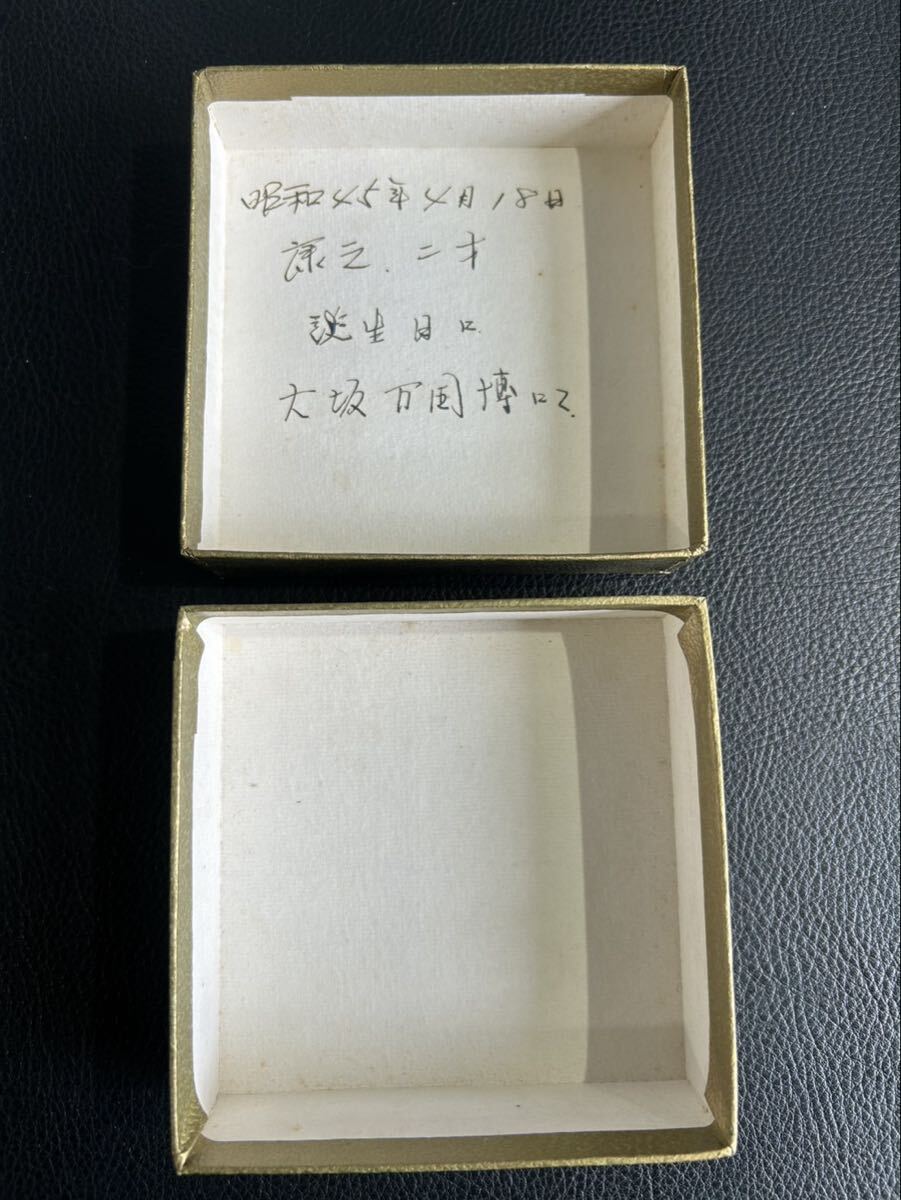 昭和45年4月18日
康之、二才
誕生日に
大坂万国博にて